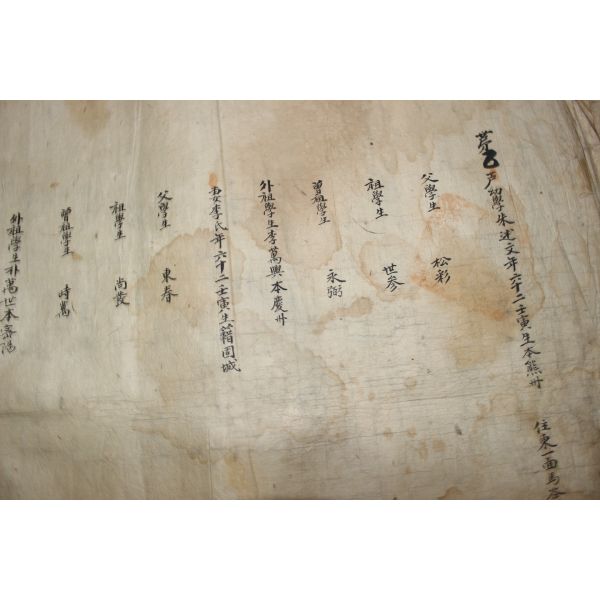 住東一面馬
第 戶幼學朱述文年六十二壬寅生本熊州
父學生 松彩
祖學生 世參
曾祖學生 永弼
外祖學生李萬興本慶州
妻李氏年六十二壬寅生籍固城
父學生 東春
祖學生 尚發
曾祖學生 時萬
外祖學生朴萬世本密陽